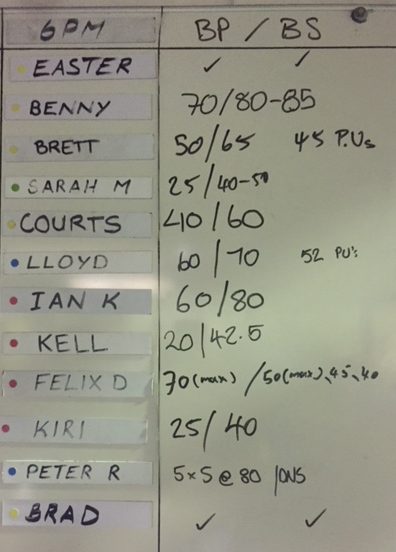 6PM BP / BS
EASTER ✓ ✓
BENNY 70/80-85
BRETT 50/65 45 P.Us
SARAH M 25/40-50
COURTS 40/60
LLOYD 60/70 52 PU's
IAN K 60/80
KELL 20/42.5
FELIX D 70(max) /50(max),45,40
KIRI 25/40
PETER R 5x5@80 /
BRAD ✓ ✓